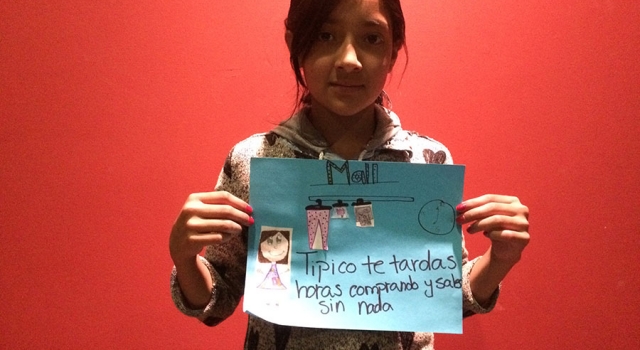 Mall
Típico te tardas
horas comprando y sales
sin nada